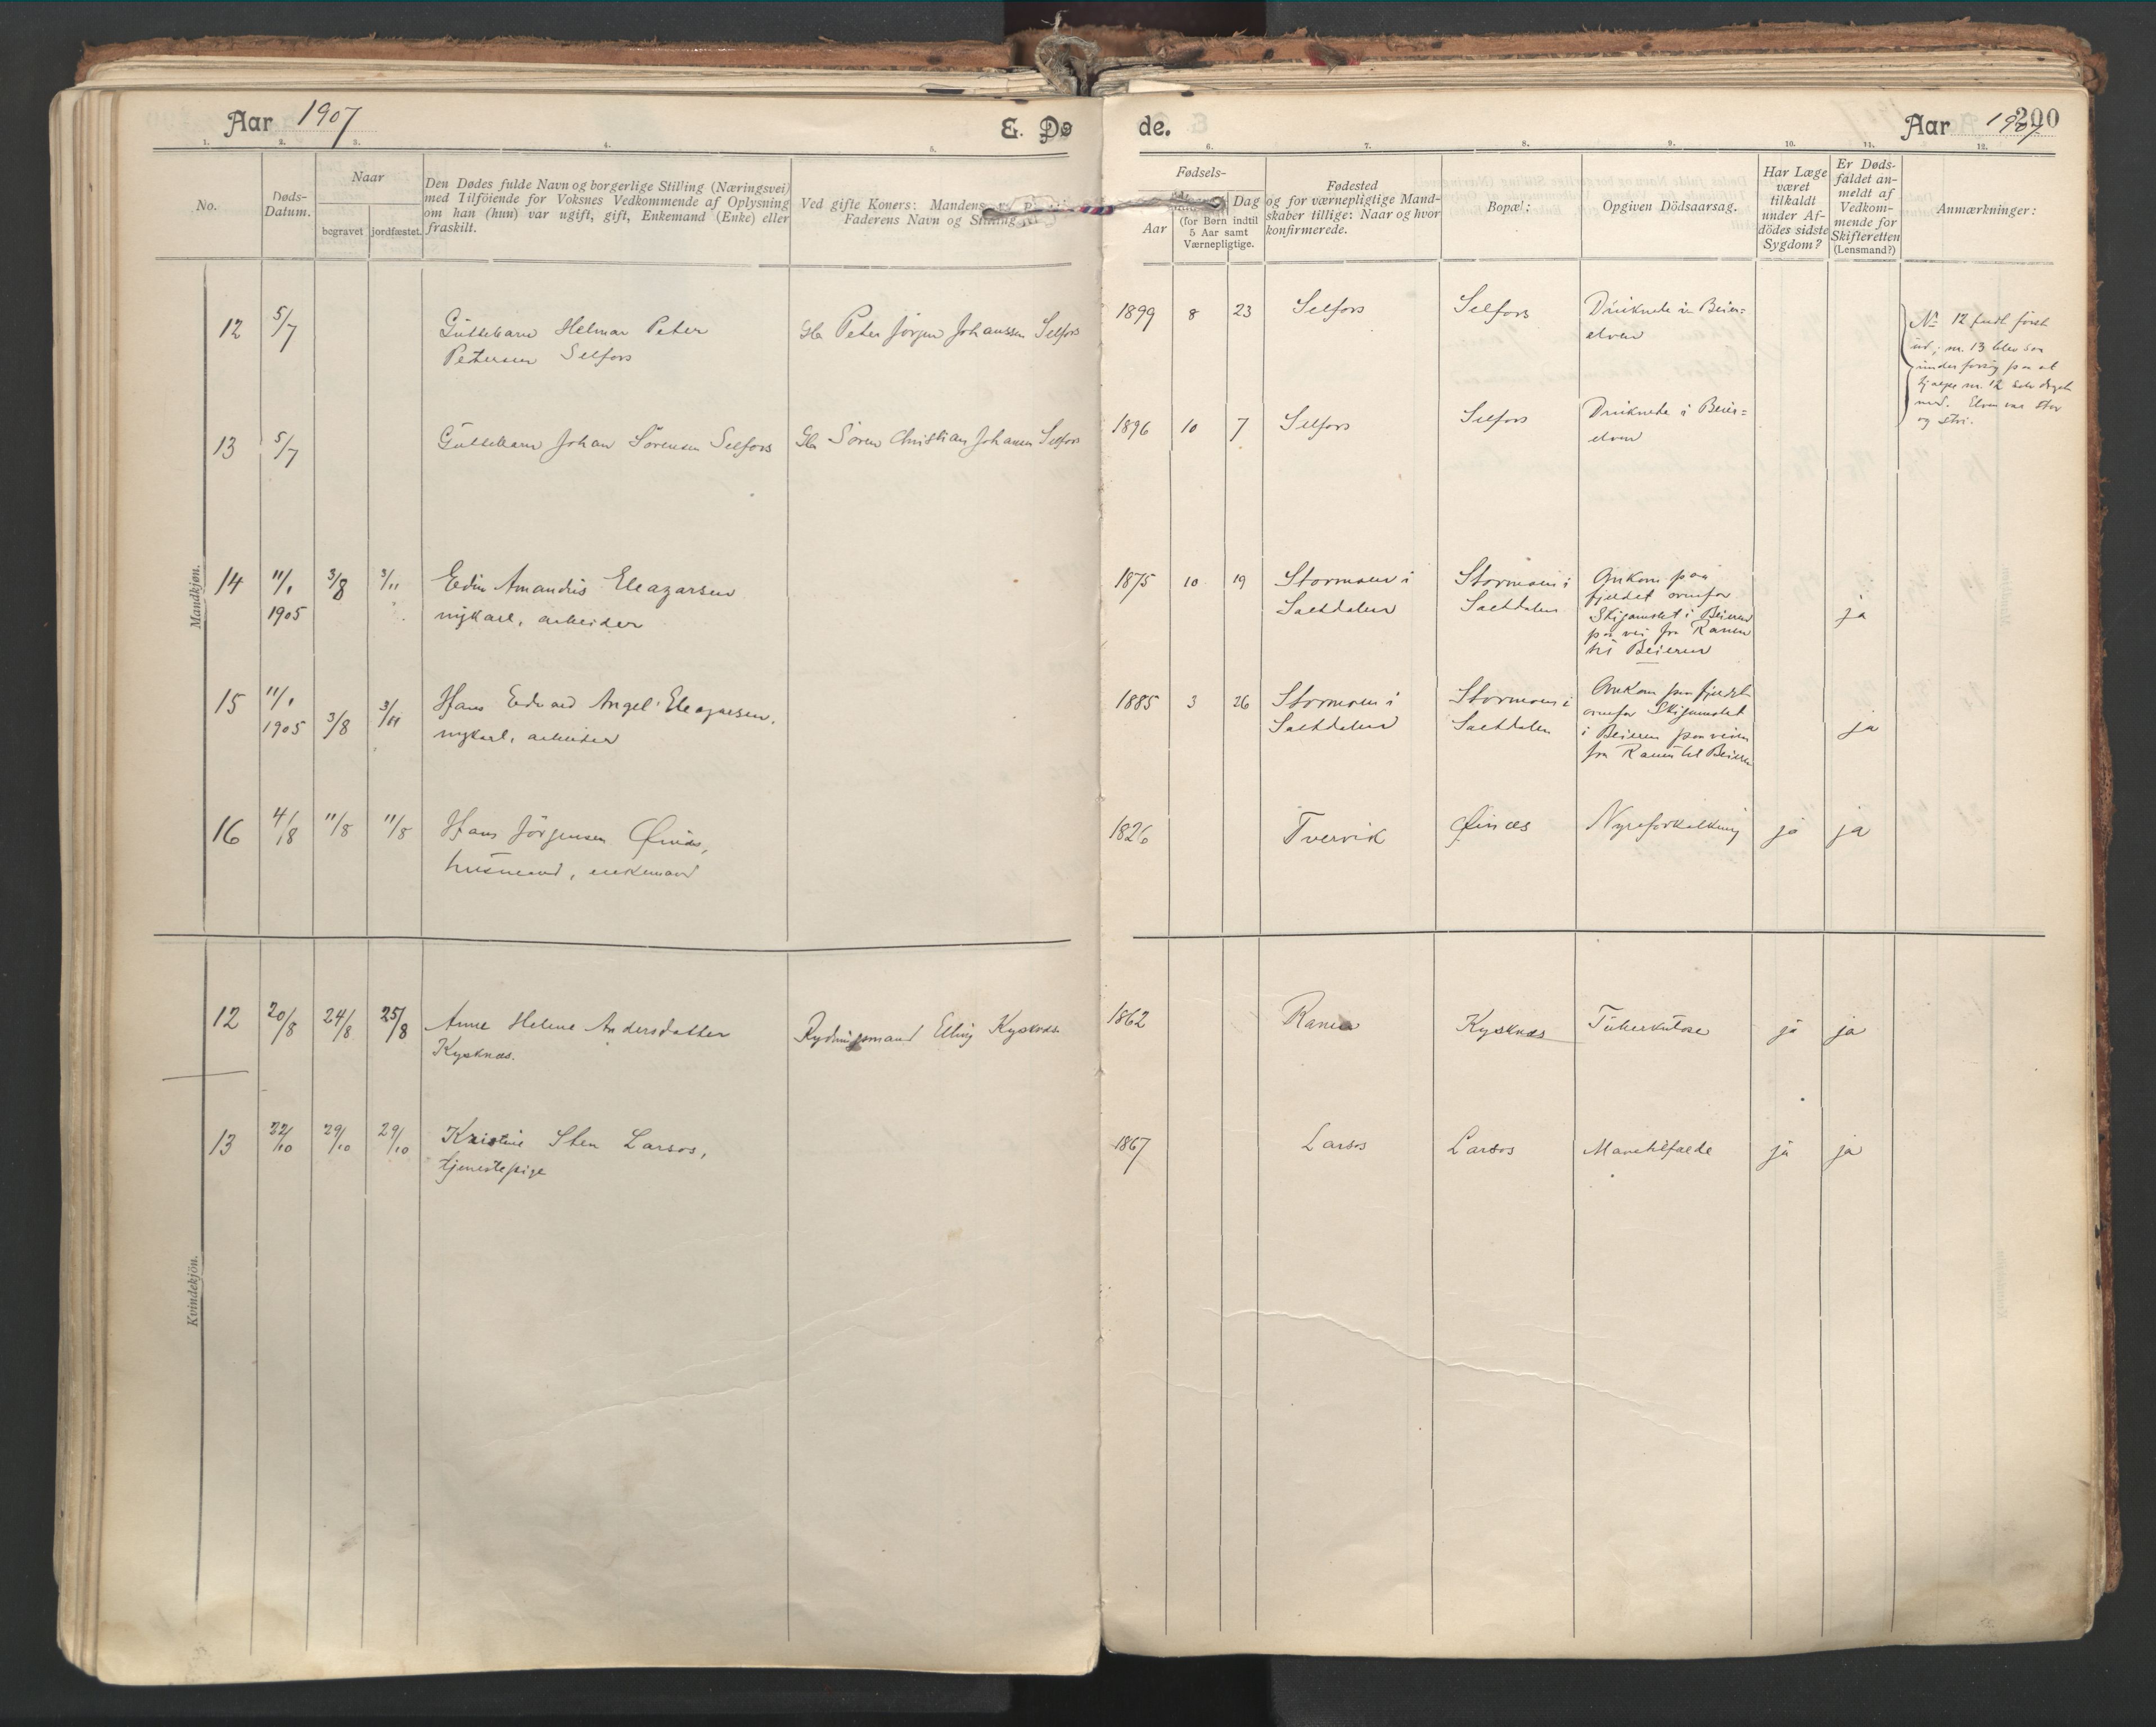 Aar 1907
E. Dø
de.
Aar 1907
200
1. 2. 3. 4. 5.
6. 7. 8. 9. 10. 11. 12.
No.
Døds-
Datum.
Naar
begravet
jordfæstet.
Den Dødes fulde Navn og borgerlige Stilling (Næringsvei)
med Tilföiende for Voksnes Vedkommende af Oplysning
om han (hun) var ugift, gift, Enkemand (Enke) eller
fraskilt.
Ved gifte Koners: Mandens,
Faderens Navn og Stilling
Fødsels-
Aar
Dag
(for Børn indtil
5 Aar samt
Værnepligtige.
Fødested
og for værnepligtige Mand-
skaber tillige: Naar og hvor
konfirmerede.
Bopæl:
Opgiven Dödsaarsag.
Har Læge
været
tilkaldt
under Af-
dödes sidste
Sygdom?
Er Døds-
faldet an-
meldt af
Vedkom-
mende for
Skifteretten
(Lensmand?)
Anmærkninger:
Mandkjøn.
12 5/7 Guttebarn Helmar Peter Gbr Peter Jörgen Johanssen Selfors 1899 8 23 Selfors Selfors Druknede i Beier=
Petersen Selfors elven
No 12 faldt först
ud; nr. 13 blev saa
under forsög paa at
hjælpe nr. 12 selv draget
med. Elven var stor
og stri.
13 5/7 Guttebarn Johan Sörensen Selfors Gbr Sören Christian Johansen Selfors 1896 10 7 Selfors Selfors Druknede i Beier=
elven
14 11/1 3/8 3/11 Edin Amandus Eleazarsen 1875 10 19 Stormoen i Stormoen i Omkom paa
1905 ungkarl, arbeider Saltdalen Saltdalen fjeldet ovenfor
Stigamslet i Beieren
paa vei fra Ranen
til Beieren
ja
15 11/1 3/8 3/11 Hans Edvard Angel Eleazarsen, 1885 3 26 Stormoen i Stormoen i Omkom paa fjeldet
1905 ungkarl, arbeider Saltdalen Saltdalen ovenfor Stigamslet
i Beieren paa veien
fra Ranen til Beieren
ja
16 4/8 11/8 11/8 Hans Jörgensen Øinæs, 1826 Tvervik Øinæs Nyreforkalkning ja ja
husmand, enkemand
Kvindekjön.
12 20/8 24/8 25/8 Anne Helene Andersdatter Rydningsmand Elling Kysknæs 1862 Ranen Kysknæs Tuberkulose ja ja
Kysknæs.
13 22/10 29/10 29/10 Kristine Sten Larsos, 1867 Larsos Larsos Mavetilfælde ja ja
tjenestepige